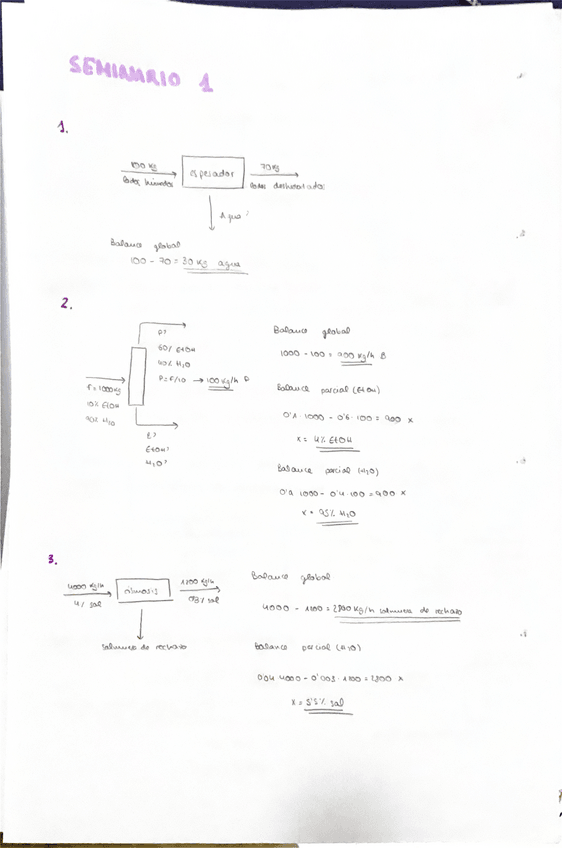 SEMINARIO 1
1.
100 Kg
espesador
70 Kg
lodos deshidratados
Agua?
Balance global
100 - 70 = 30 Kg agua
2.
D?
60% EtOH
40% H2O
D = F/10 → 100 Kg/h D
F = 1000 Kg
10% EtOH
90% H2O
EtOH?
H2O?
Balance global
1000 - 100 = 900 Kg/h B
Balance parcial (EtOH)
0'1 · 1000 - 0'6 · 100 = 900 x
x = 4% EtOH
Balance parcial (H2O)
1000 - 0'4 · 100 = 900 x
x = 95% H2O
3.
4000 Kg/h
4% sal
ósmosis
0'3% sal
salmuera de rechazo
Balance global
Kg/h salmuera de rechazo
Balance parcial (H2O)
0'04 · 4000 - 0'003 ·
x = 5'5% sal